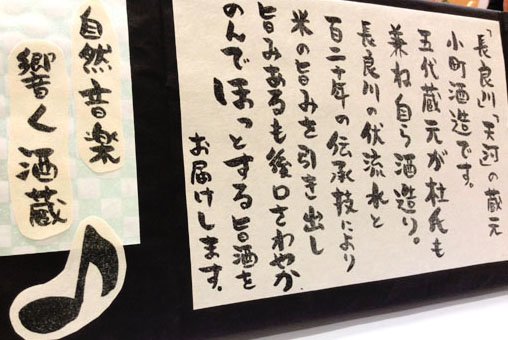 「長良川」「天河」の蔵元
小町酒造です。
五代蔵元が杜氏も
兼ね自ら酒造り。
長良川の伏流水と
百二十年の伝承技により
米の旨みを引き出し
旨みあるも後口さわやか
のんでほっとする旨酒を
お届けします。
自然音楽
響く酒蔵